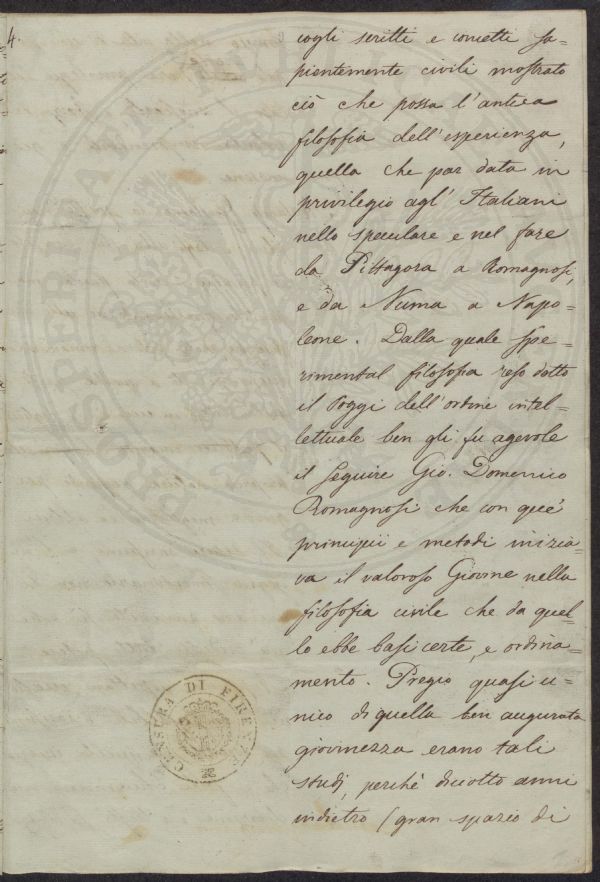 4.
cogli scritti e concetti sa-
pientemente civili mostrato
ciò che possa l'antica
filosofia dell'esperienza,
quella che par data in
privilegio agl' Italiani
nello speculare e nel fare
da Pittagora a Romagnosi,
e da Numa a Napo-
leone. Dalla quale spe-
rimental filosofia reso dotto
il Poggi dell'ordine intel-
lettuale ben gli fu agevole
il seguire Gio. Domenico
Romagnosi che con que'
principii e metodi inizia-
va il valoroso Giovine nella
filosofia civile che da quel-
lo ebbe basi certe, e ordina-
mento. Pregio quasi u-
nico di quella ben augurata
giovinezza erano tali
studj, perchè diciotto anni
indietro (gran spazio di
CENSURA DI FIRENZE
PROSPER